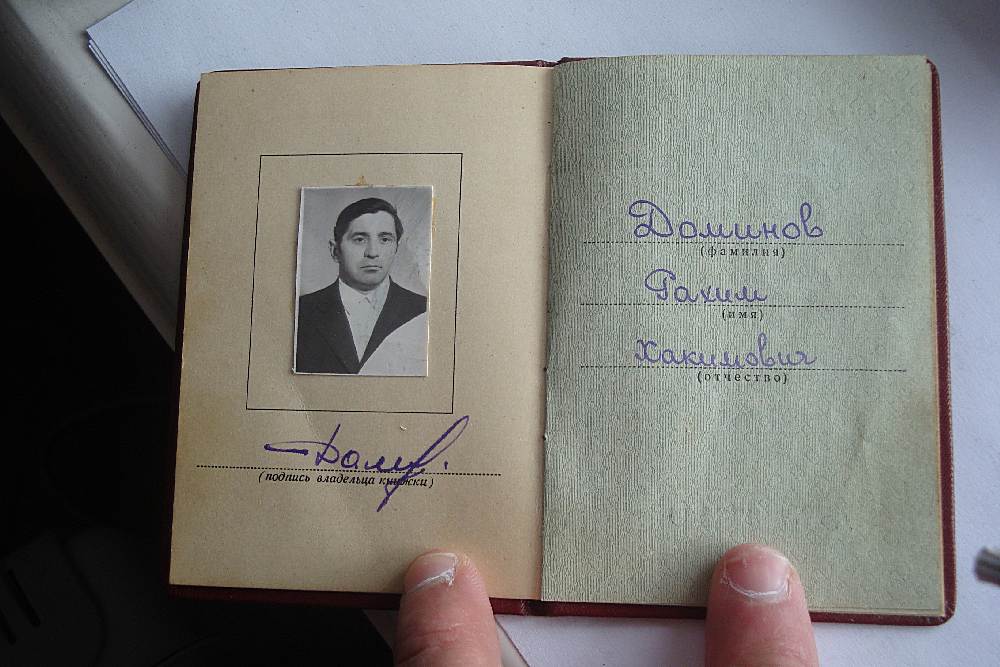 Домин.
(подпись владельца книжки)
Доминов
(фамилия)
Рахим
(имя)
Хакимович
(отчество)